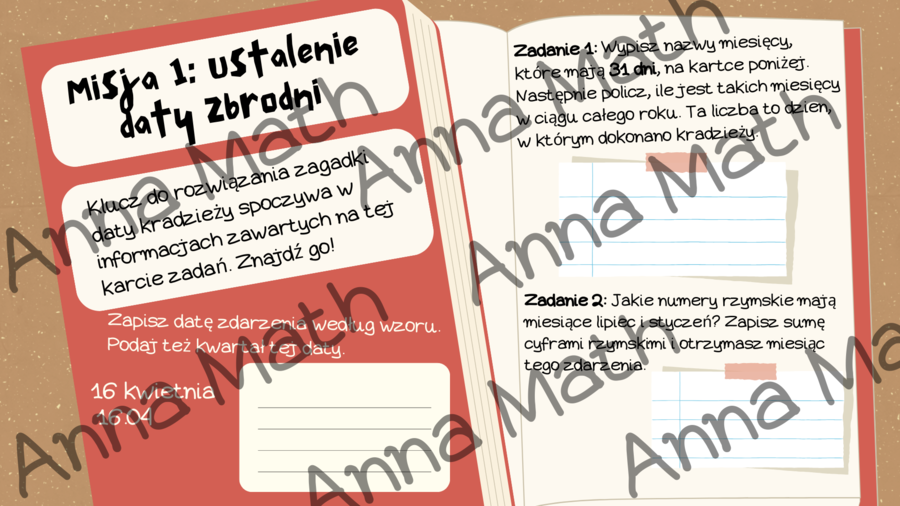 Misja 1: ustalenie
daty zbrodni
Klucz do rozwiązania zagadki
daty kradzieży spoczywa w
informacjach zawartych na tej
karcie zadań. Znajdź go!
Zapisz datę zdarzenia według wzoru.
Podaj też kwartał tej daty.
16 kwietnia
16.04
Zadanie 1: Wypisz nazwy miesięcy,
które mają 31 dni, na kartce poniżej.
Następnie policz, ile jest takich miesięcy
w ciągu całego roku. Ta liczba to dzień,
w którym dokonano kradzieży.
Zadanie 2: Jakie numery rzymskie mają
miesiące lipiec i styczeń? Zapisz sumę
cyframi rzymskimi i otrzymasz miesiąc
tego zdarzenia.
Anna Math
Anna Math
Anna Math
Anna Math
Anna Math
Anna Math
Anna Ma